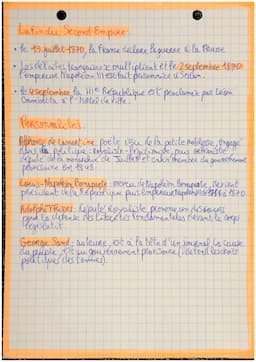 La fin du Second Empire:
• le 19 juillet 1870, la France déclare la guerre à la Prusse
• Les défaites françaises se multiplient et le 2 septembre 1870
l'empereur Napoléon III est fait prisonnier à Sedan.
• le 4 septembre la IIIe République est proclamée par Léon
Gambetta à l'Hôtel de Ville.
Personnalités:
Alphonse de Lamartine, poète issu de la petite noblesse, engagé
dans la politique
député de la monarchie de Juillet et membre du gouvernement
provisoire en 1948.
Louis-Napoléon Bonaparte: neveu de Napoléon Bonaparte, devient
président de la République puis Empereur Napoléon III
Adolphe Thiers: député royaliste, prononce un discours
pour la défense des libertés fondamentales devant le corps
législatif.
George Sand: auteure, à la tête d'un journal La cause
du peuple, au gouvernement provisoire
politiques des femmes).